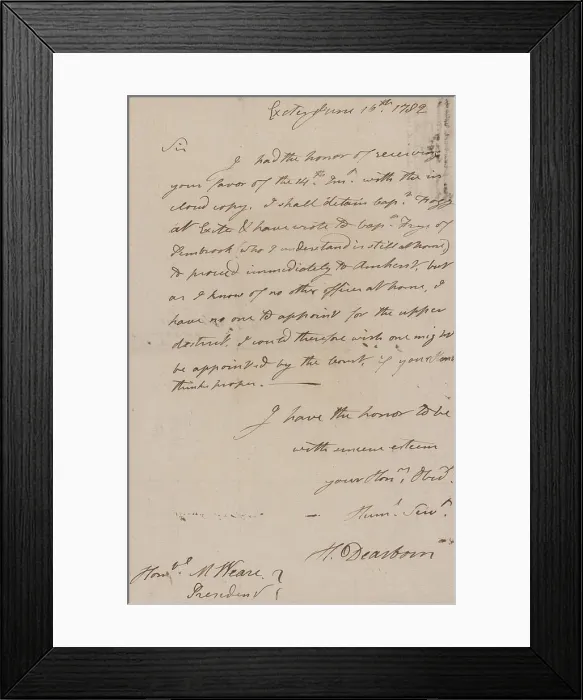 Exeter June 16th. 1782
Sir
I had the honor of receiving
your favor of the 14th. Inst. with the in
closed copy. I shall detain Capt.
at Exeter & have wrote to Capt. Frye of
Pembrook (who I understand is still at home)
to proceed immediately to Amherst, but
as I know of no other officer at home, I
have no one to appoint for the upper
district. I could therefore wish one might
be appointed by the Court, if your Honr
thinks proper.
I have the honor to be
with sincere esteem
your Honrs. Obed.
Huml. Servt.
H. Dearborn
Honbl. M Weare.
President